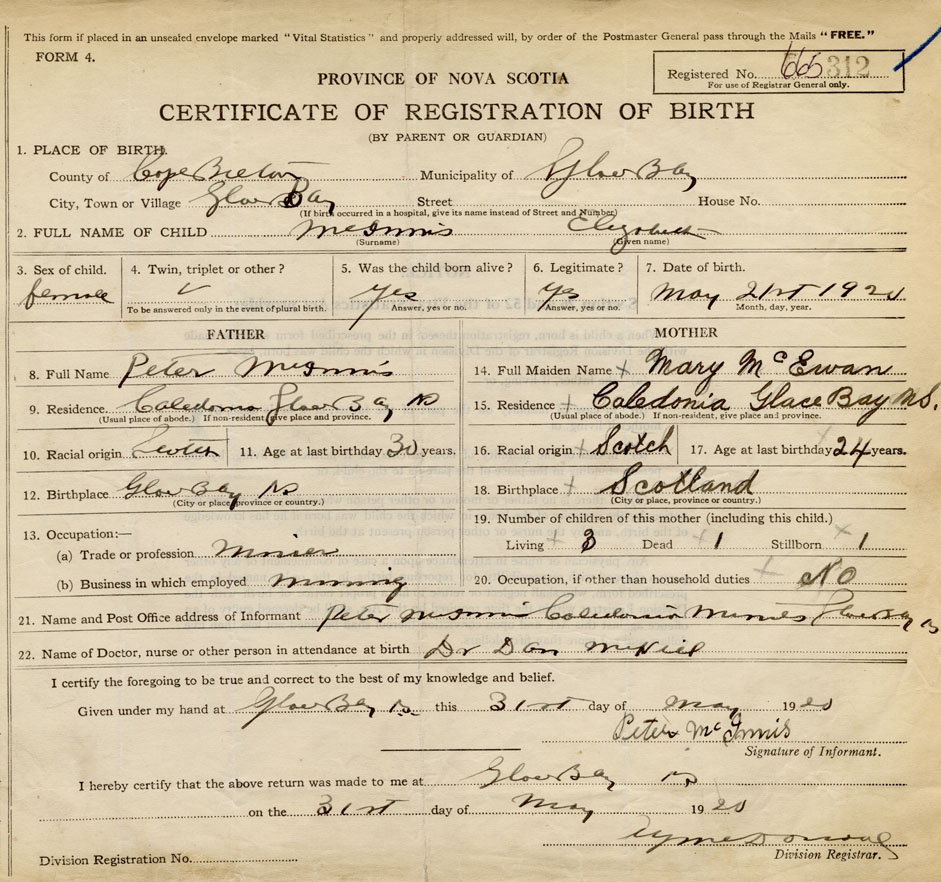 This form if placed in an unsealed envelope marked "Vital Statistics" and properly addressed will, by order of the Postmaster General pass through the Mails "FREE."
FORM 4.
Registered No. 665312
For use of Registrar General only.
PROVINCE OF NOVA SCOTIA
CERTIFICATE OF REGISTRATION OF BIRTH
(BY PARENT OR GUARDIAN)
1. PLACE OF BIRTH.
County of Cape Breton Municipality of Glace Bay
City, Town or Village Glace Bay Street House No.
(If birth occurred in a hospital, give its name instead of Street and Number)
2. FULL NAME OF CHILD McInnis Elizabeth
(Surname) (Given name)
3. Sex of child. 4. Twin, triplet or other? 5. Was the child born alive? 6. Legitimate? 7. Date of birth.
female Yes Yes May 21st 1920
To be answered only in the event of plural birth. Answer, yes or no. Answer, yes or no. Month, day, year.
FATHER MOTHER
8. Full Name Peter McInnis 14. Full Maiden Name Mary McEwan
9. Residence. Caledonia Glace Bay NS 15. Residence Caledonia Glace Bay N.S.
(Usual place of abode.) If non-resident, give place and province. (Usual place of abode.) If non-resident, give place and province.
10. Racial origin Scotch 11. Age at last birthday 30 years. 16. Racial origin Scotch 17. Age at last birthday 24 years.
12. Birthplace Glace Bay NS 18. Birthplace Scotland
(City or place, province or country.) (City or place, province or country.)
13. Occupation:— 19. Number of children of this mother (including this child.)
(a) Trade or profession Minier Living 3 Dead 1 Stillborn 1
(b) Business in which employed Mining 20. Occupation, if other than household duties NO
21. Name and Post Office address of Informant Peter McInnis Caledonia Mines Glace Bay NS
22. Name of Doctor, nurse or other person in attendance at birth Dr Dan McNeil
I certify the foregoing to be true and correct to the best of my knowledge and belief.
Given under my hand at Glace Bay NS this 31st day of May 1920
Peter McInnis
Signature of Informant.
I hereby certify that the above return was made to me at Glace Bay NS
on the 31st day of May 1920
Division Registrar.
Division Registration No.